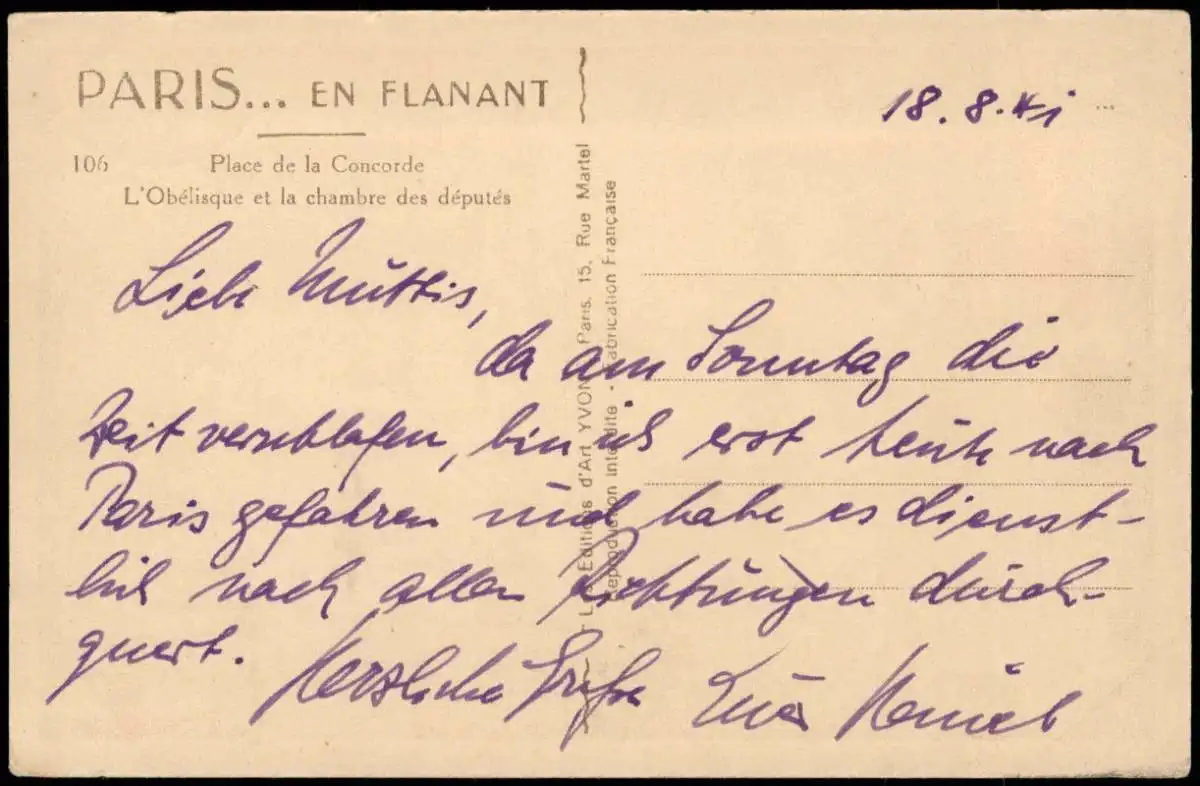 PARIS... EN FLANANT
106 Place de la Concorde
L'Obélisque et la chambre des députés
18.8.41
Liebe Muttis,
da am Sonntag die
Zeit verschlafen, bin ich erst heute nach
Paris gefahren und habe es dienst-
lich nach allen Richtungen durch-
quert. Herzliche Grüße Euer
Editions d'Art YVON, Paris, 15, Rue Martel
Reproduction Interdite - Fabrication Française